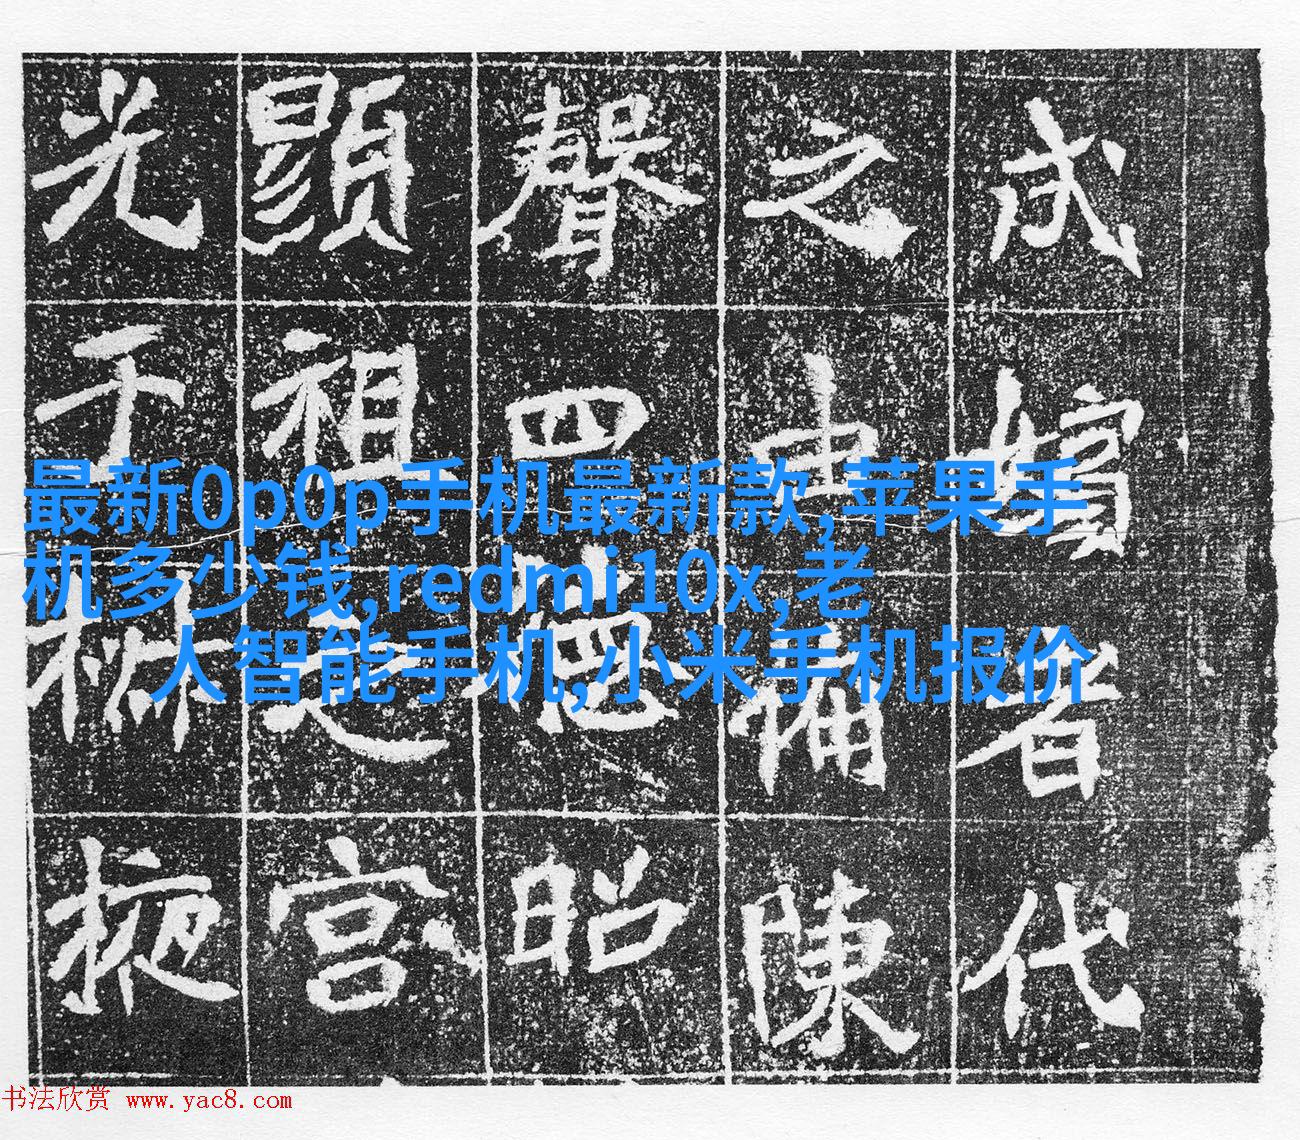 式嬪者代
之史補陳
聲四德昭
顯祖之宮
光于椒掖
最新0p0p手机最新款,苹果手
机多少钱,redmi10x,老
人智能手机,小米手机报价
书法欣赏 www.yac8.com